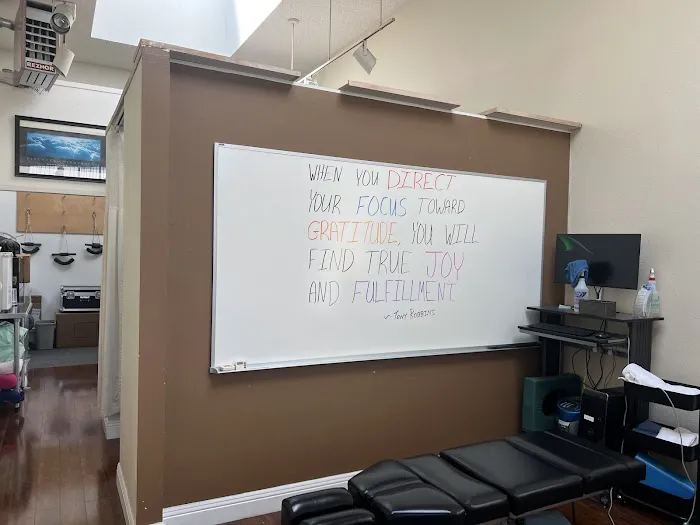 REZNOR
WHEN YOU DIRECT
YOUR FOCUS TOWARD
GRATITUDE, YOU WILL
FIND TRUE JOY
AND FULFILLMENT
~ TONY ROBBINS